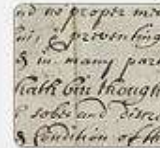 nd no proper me
s, & preventing
& in many par
hath bin though
sober and discre
& Condition of th